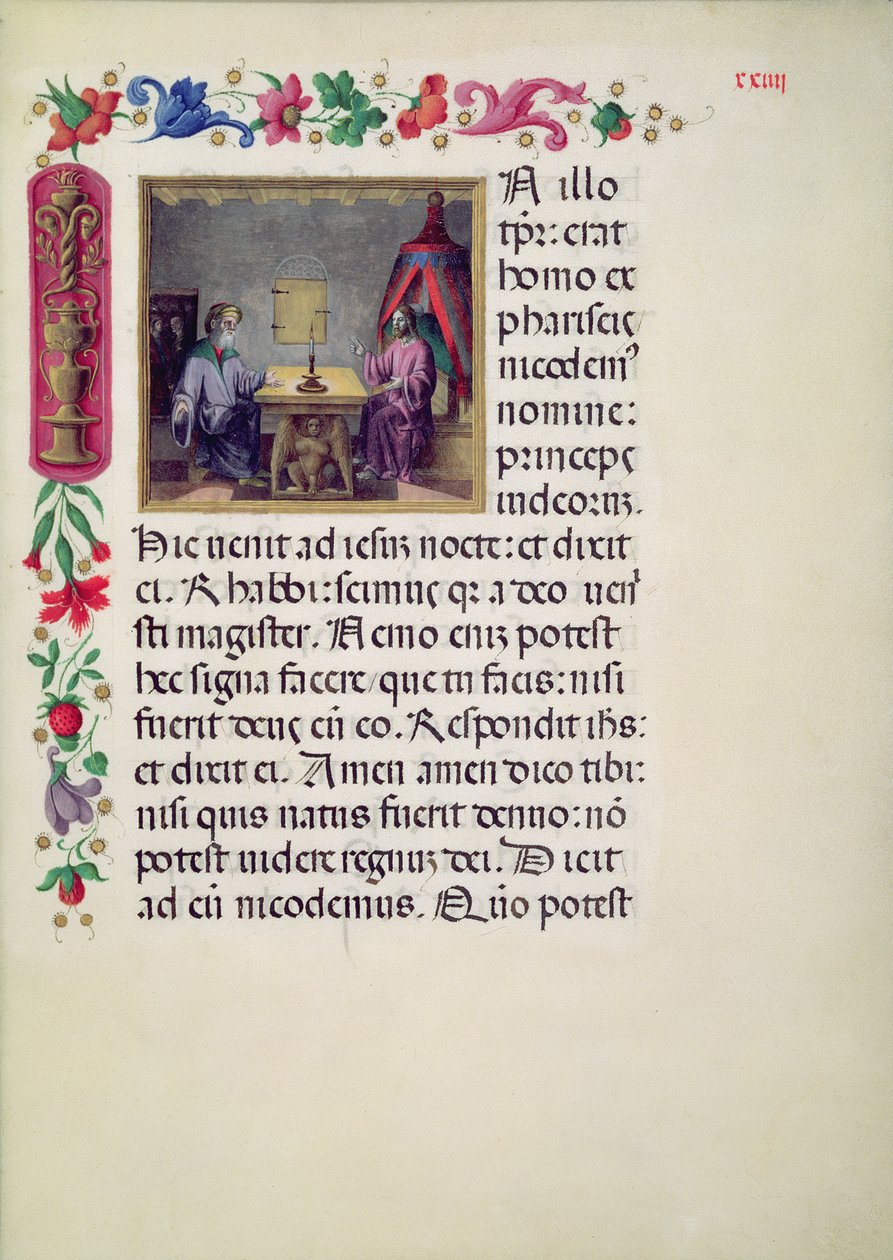 xxiiij
N illo
tp̄r: erat
homo ex
phariseis
nicodemꝰ
nomine:
princeps
iudeoruꝫ.
Hic uenit ad iesuꝫ nocte: et dixit
ei. Rhabbi: scimus qꝛ a deo ueni
sti magister. Nemo eniꝫ potest
hec signa facere/ que tu facis: nisi
fuerit deus cū eo. Respondit ihs̄:
et dixit ei. Amen amen dico tibi:
nisi quis natus fuerit denuo: nō
potest uidere regnuꝫ dei. Dicit
ad eū nicodemus. Quō potest